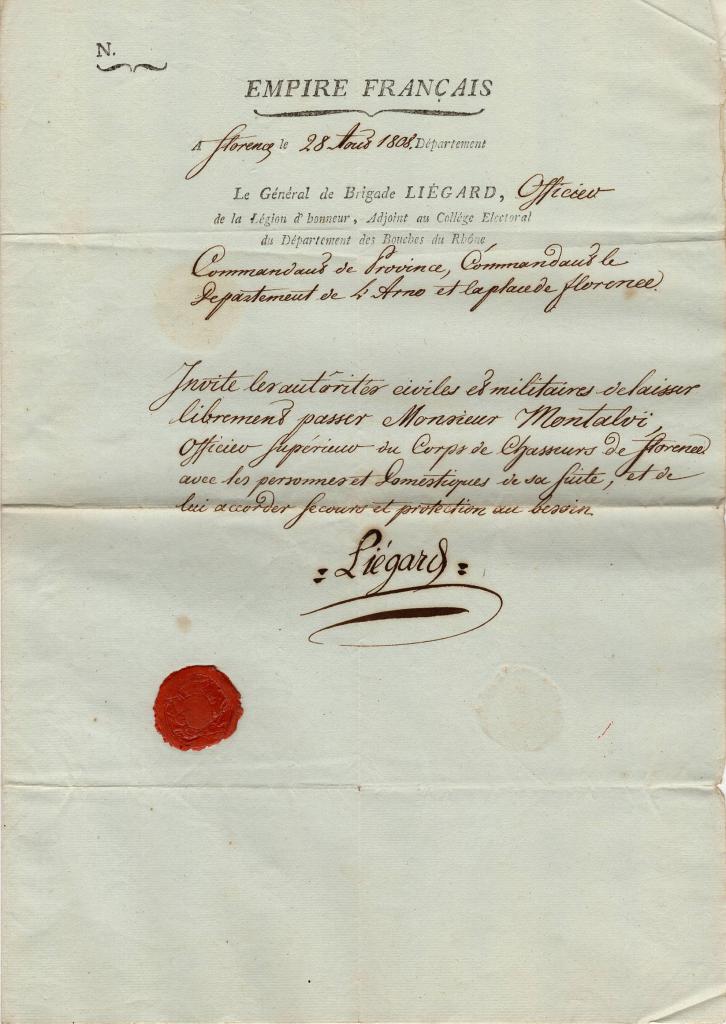 N.
EMPIRE FRANÇAIS
A florence le 28 Aout 1808. Département
Le Général de Brigade LIÉGARD, Officier
de la Légion d'honneur, Adjoint au Collége Electoral
du Département des Bouches du Rhône
Commandant de Province, Commandant le
Departement de L'Arno et la place de florence.
Invite les autorités civiles et militaires de laisser
librement passer Monsieur Montalvi,
Officier Supérieur du Corps de Chasseurs de florence
avec les personnes et Domestiques de sa suite, et de
lui accorder secours et protection au besoin
Liégard